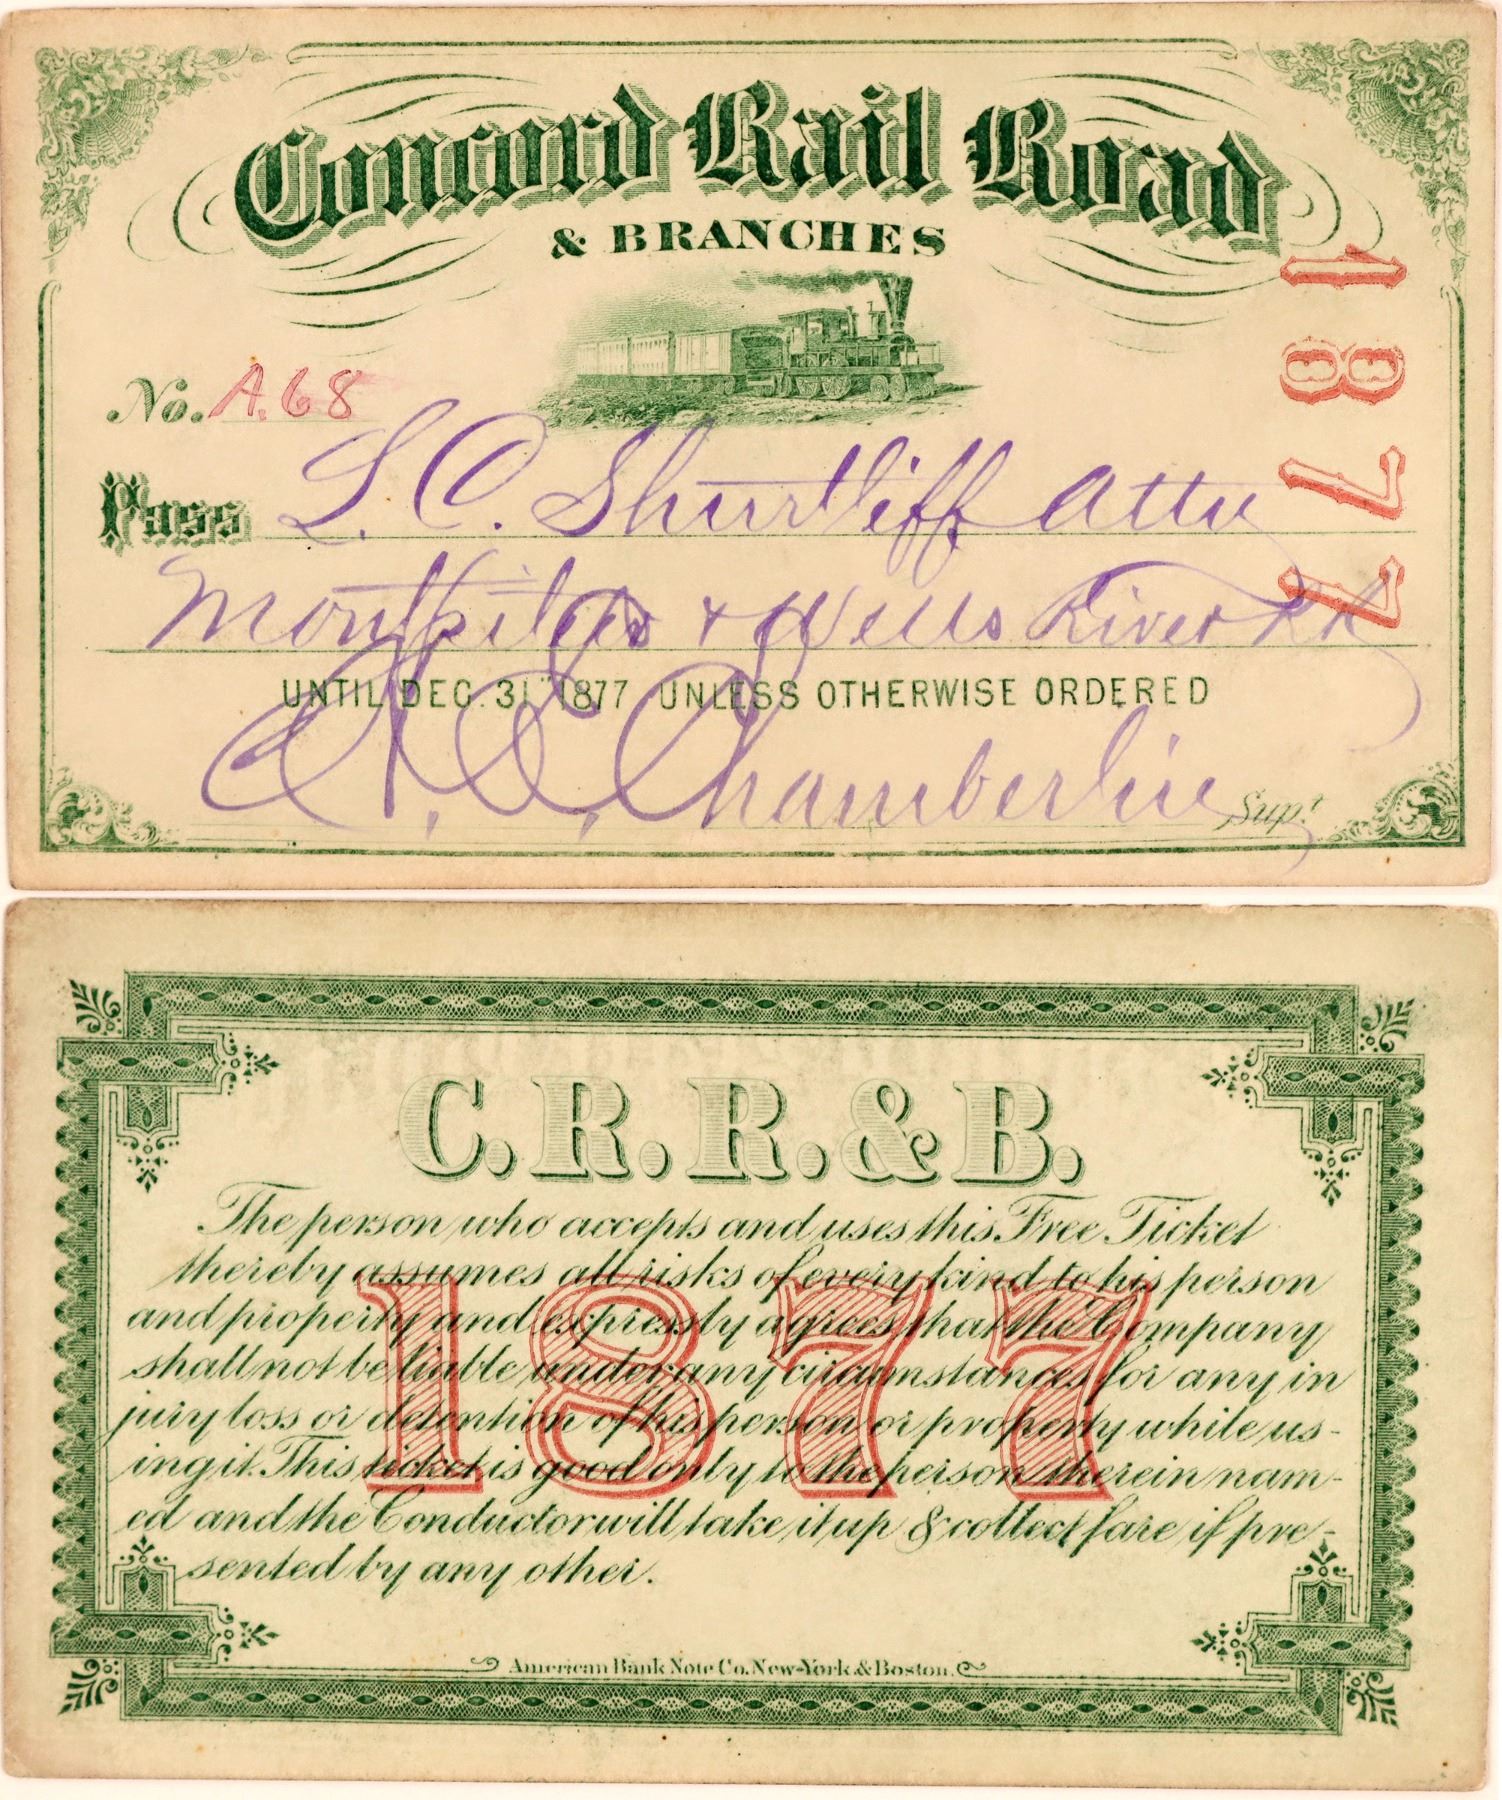 Concord Rail Road
& BRANCHES
1877
No. A.68
Pass L. C. Shurtleff Atty
Montpelier & Wells River RR
UNTIL DEC. 31st 1877 UNLESS OTHERWISE ORDERED
H. E. Chamberlin Supt.
C. R. R. & B.
The person who accepts and uses this Free Ticket
thereby assumes all risks of every kind to his person
and property and expressly agrees that the Company
shall not be liable under any circumstances for any in
jury loss or detention of his person or property while us-
ing it. This ticket is good only to the person therein nam-
ed and the Conductor will take it up & collect fare if pre-
sented by any other.
1877
American Bank Note Co. New-York & Boston.